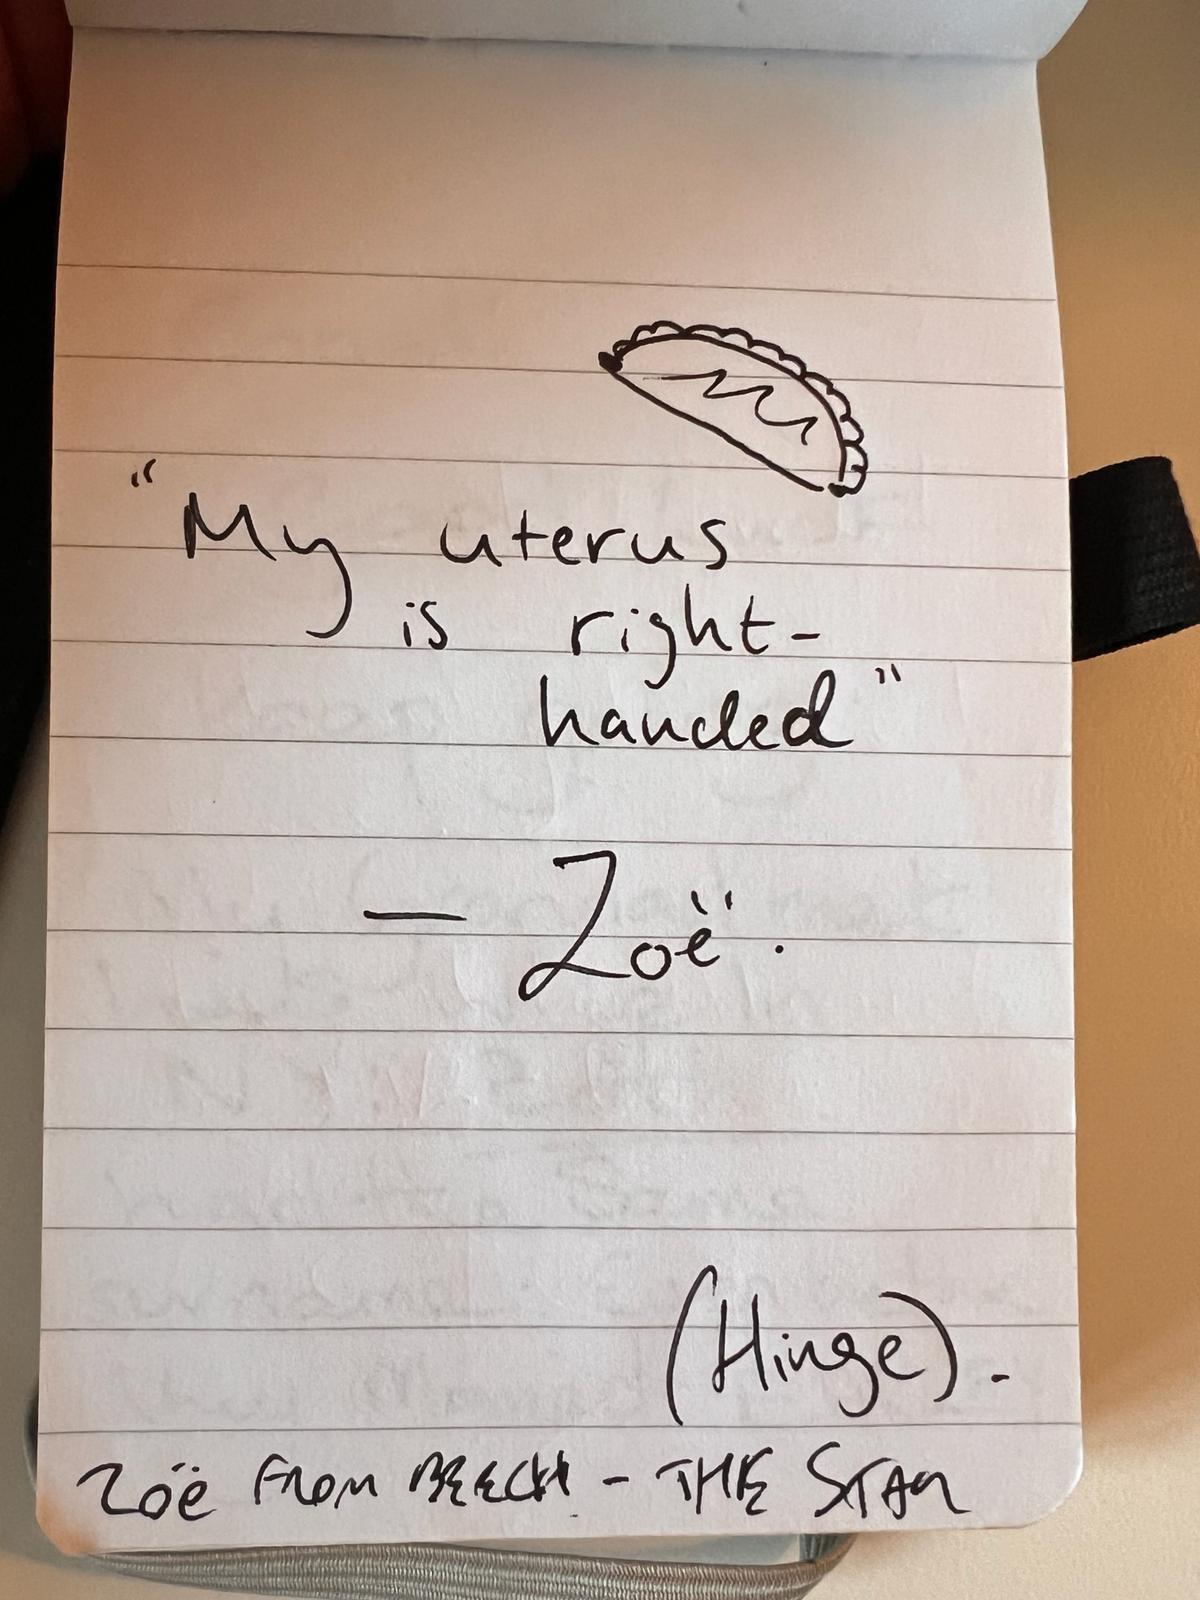 "My uterus
is right-
handed"
— Zoë.
(Hinge).
Zoë FROM BEECH - THE STAR